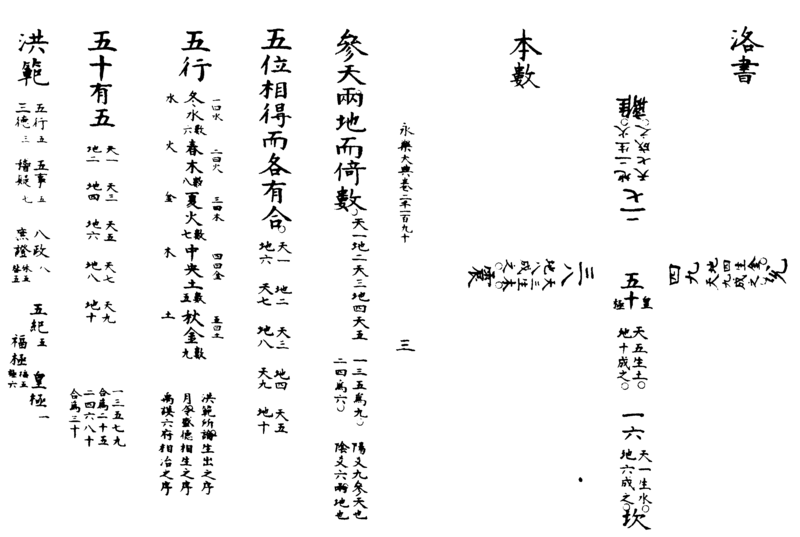 洛書
離
地二生火
天七成之
二七
兌
地四生金
天九成之
四九
五十
皇極
天五生土
地十成之
三八
天三生木
地八成之
震
一六
天一生水
地六成之
坎
本數
永樂大典卷二千一百九十
三
參天兩地而倚數
天一地二天三地四天五
一三五爲九
二四爲六
陽爻九參天也
陰爻六兩地也
五位相得而各有合
天一 地二 天三 地四 天五
地六 天七 地八 天九 地十
五行
一曰水 二曰火 三曰木 四曰金 五曰土
冬水數六 春木數八 夏火數七 中央土數五 秋金數九
水 火 金 木 土
洪範所論生出之序
月令盛德相生之序
禹謨六府相治之序
五十有五
天一 天三 天五 天七 天九
地二 地四 地六 地八 地十
一三五七九
合爲二十五
二四六八十
合爲三十
洪範
五行五 五事五 八政八 五紀五 皇極一
三德三 稽疑七 庶證休五咎五 福極福五極六